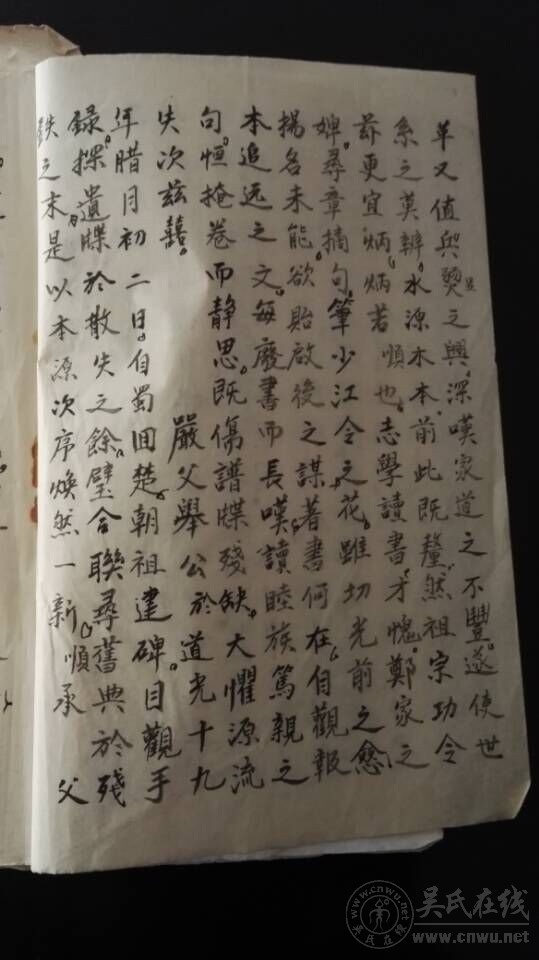 革又值與獎之興。深嘆家道之不豐。遂使世
系之莫辨。水源木本。前此既釐然。祖宗功令
茲更宜炳炳若順也。志學讀書。才愧鄭家之
婢。尋章摘句。筆少江令之花。雖切光前之愆。
揚名未能。欲貽啟後之謀。著書何在。自觀報
本追远之文。每廢書而長嘆。讀睦族篤親之
句。恒掩卷而静思。既傷譜牒殘缺。大懼源流
失次兹囍。
嚴父舉公於道光十九
年腊月初二日。自蜀囬楚。朝祖建碑。目觀手
録。探遺牒於散失之餘。璧合聯尋舊典於殘
鉄之末。是以本源次序焕然一新。順承父
吴氏在线
www.cnwu.net
www.cnwu.net
吴氏在线